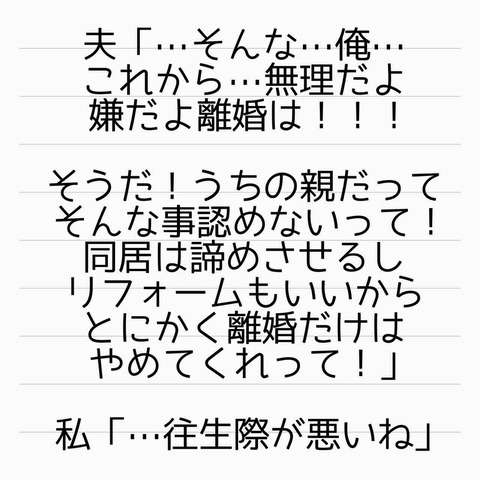 夫「…そんな…俺…
これから…無理だよ
嫌だよ離婚は！！！
そうだ！うちの親だって
そんな事認めないって！
同居は諦めさせるし
リフォームもいいから
とにかく離婚だけは
やめてくれって！」
私「…往生際が悪いね」